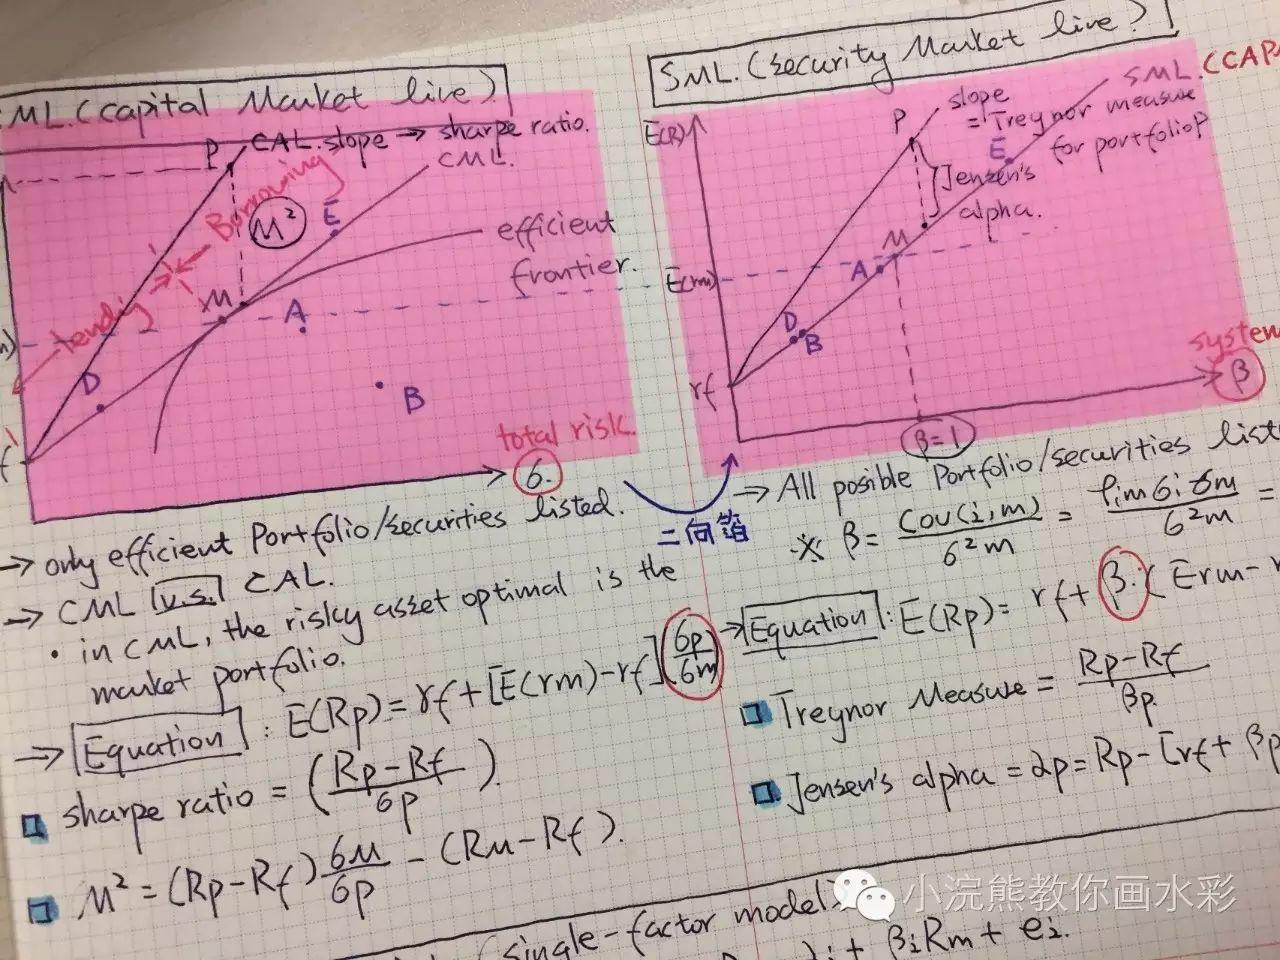 ML.(capital Market live).
P
CAL.slope → sharpe ratio.
CML.
Borrowing
M²
E
efficient
frontier.
lending
M
A
D
B
total risk.
6.
→ only efficient Portfolio/securities listed.
→ CML v.s. CAL.
• in CML, the risky asset optimal is the
market portfolio.
→ Equation : E(Rp)= rf+[E(rm)-rf](6p/6m)
sharpe ratio = (Rp-Rf/6p).
M² = (Rp-Rf)6M/6p - (RM-Rf).
SML.(security Market live)
SML.(CAP
E(R)
P
slope
= Treynor measure
for portfolio P
E
Jensen's
alpha.
M
E(rm)
A
D
B
rf
system
β
β=1
二向箔
→ All posible Portfolio/securities list
※ β= Cov(i,m)/6²m = ρim6i6m/6²m =
→ Equation : E(Rp)= rf+ β·(Erm-r
Treynor Measure = Rp-Rf/βp
Jensen's alpha = αp= Rp-[rf+ βp
single-factor model
αi+ βiRm+ ei.
小浣熊教你画水彩